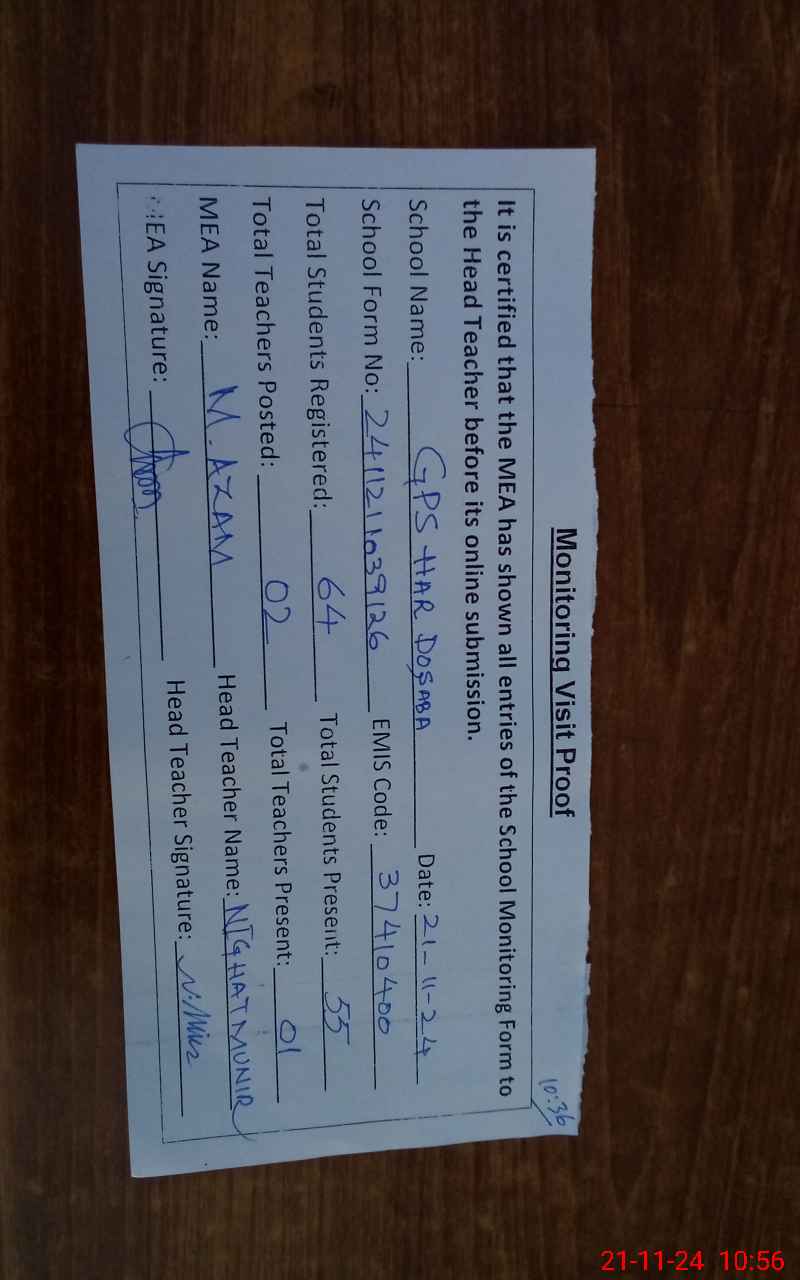 Monitoring Visit Proof
10:36
It is certified that the MEA has shown all entries of the School Monitoring Form to
the Head Teacher before its online submission.
School Name: GPS HAR DOSABA Date: 21-11-24
School Form No: 2411211039126 EMIS Code: 37410400
Total Students Registered: 64 Total Students Present: 55
Total Teachers Posted: 02 Total Teachers Present: 01
MEA Name: M. AZAM Head Teacher Name: NIGHAT MUNIR
MEA Signature: Head Teacher Signature:
21-11-24 10:56